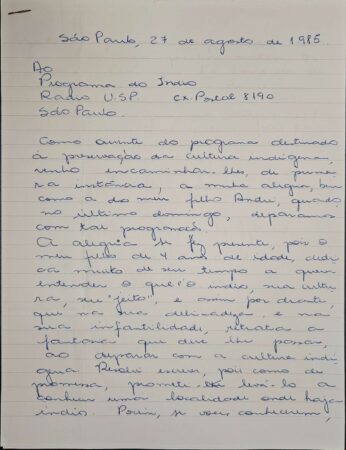 São Paulo, 27 de agosto de 1985
Ao
Programa do Índio
Rádio U.S.P cx Postal 8190
São Paulo.
Como ouvinte do programa destinado
à preservação da cultura indígena,
venho encaminhar-lhes, de primei
ra instância, a minha alegria, bem
como a do meu filho André, quando
no último domingo, deparamos
com tal programação.
A alegria se fez presente, pois o
meu filho de 4 anos de idade, dedi
ca muito de seu tempo a querer
entender o que é o índio, sua cultu
ra, seu "jeito", e assim por diante,
que na sua delicadeza e na
sua infantilidade, retrata a
fantasia que deve lhe passar,
ao deparar com a cultura indí
gena. Resolvi escrever, pois como de
promessa, prometi levá-lo a
conhecer uma localidade onde haja
índios. Porém, se vocês conhecerem,